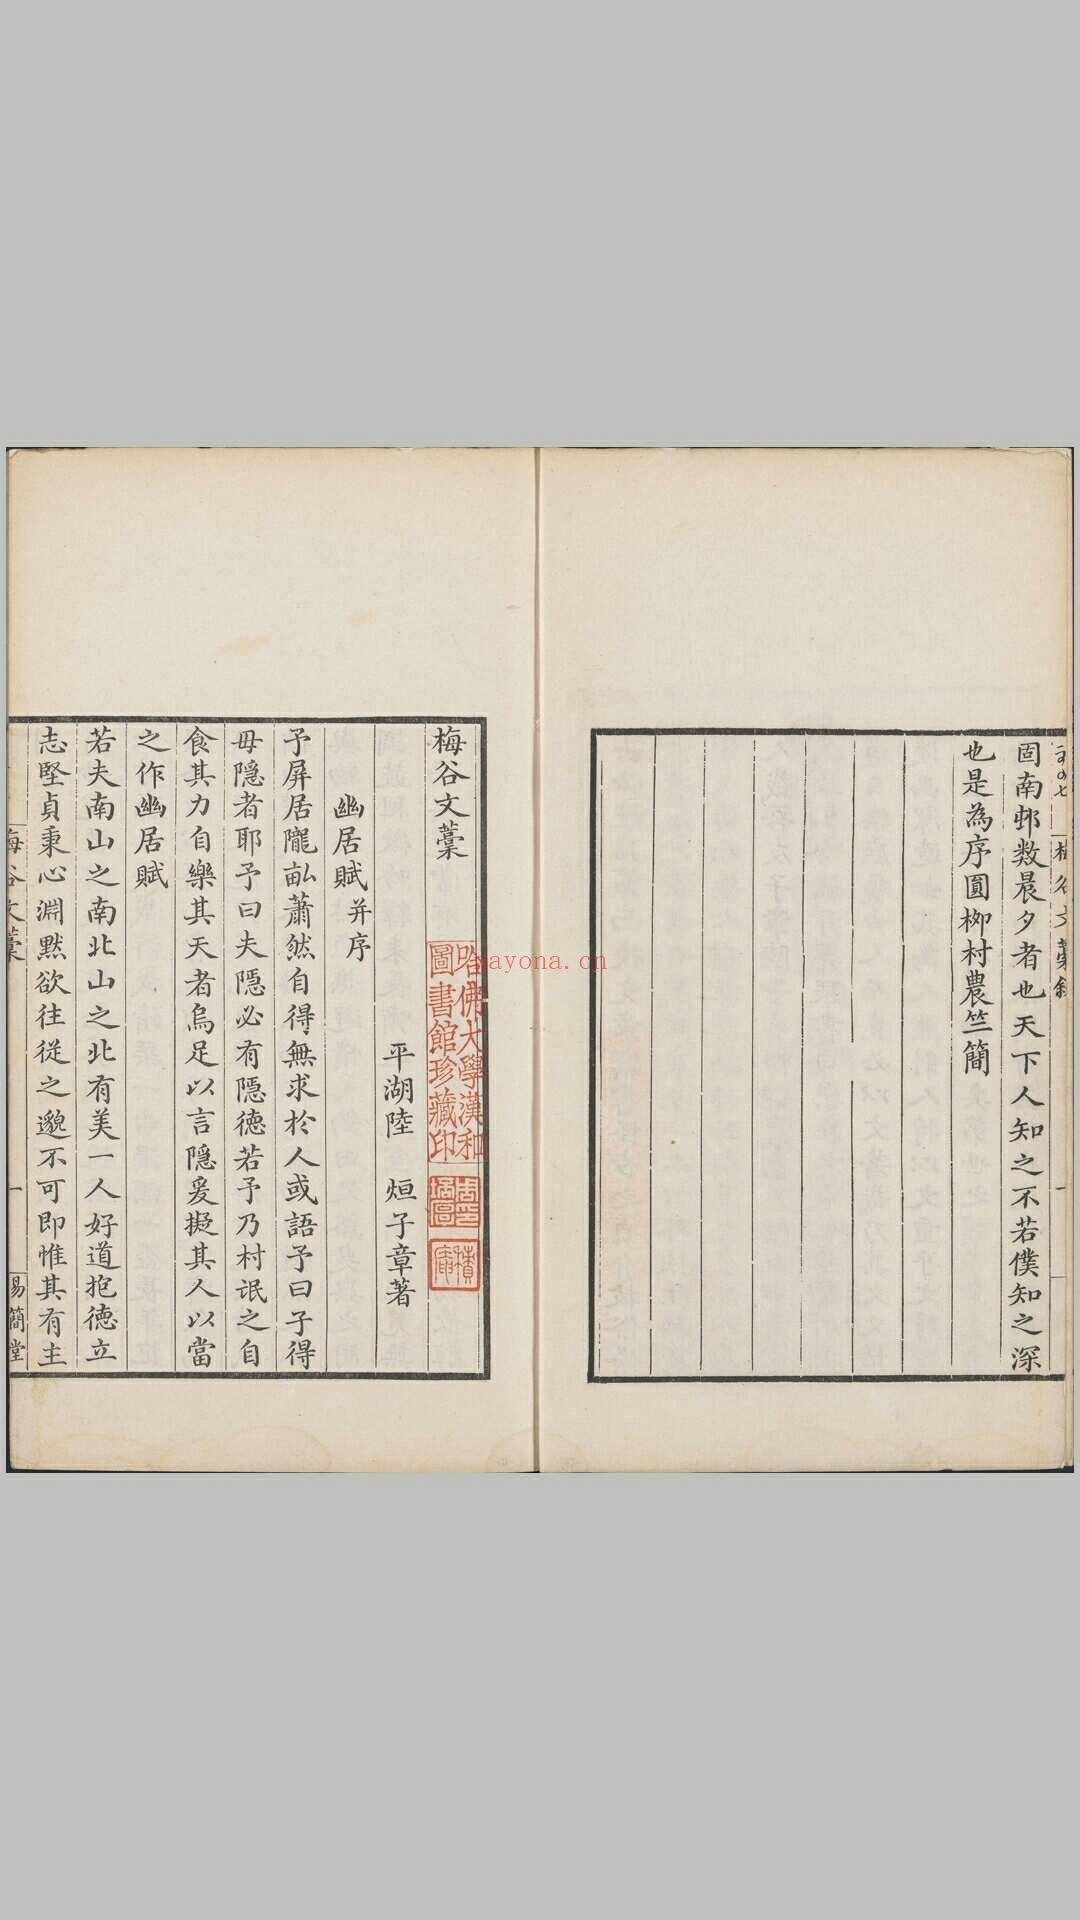 固南邨数晨夕者也天下人知之不若僕知之深
也是為序圓柳村農竺簡
梅谷文藁
平湖陸 烜子章著
幽居賦并序
予屏居隴畝蕭然自得無求於人或語予曰子得
毋隱者耶予曰夫隱必有隱德若予乃村氓之自
食其力自樂其天者烏足以言隱爰擬其人以當
之作幽居賦
若夫南山之南北山之北有美一人好道抱德立
志堅貞秉心淵默欲往從之邈不可即惟其有主
梅谷文藁
一
易簡堂
哈佛大學漢和
圖書館珍藏印
sayona.cn